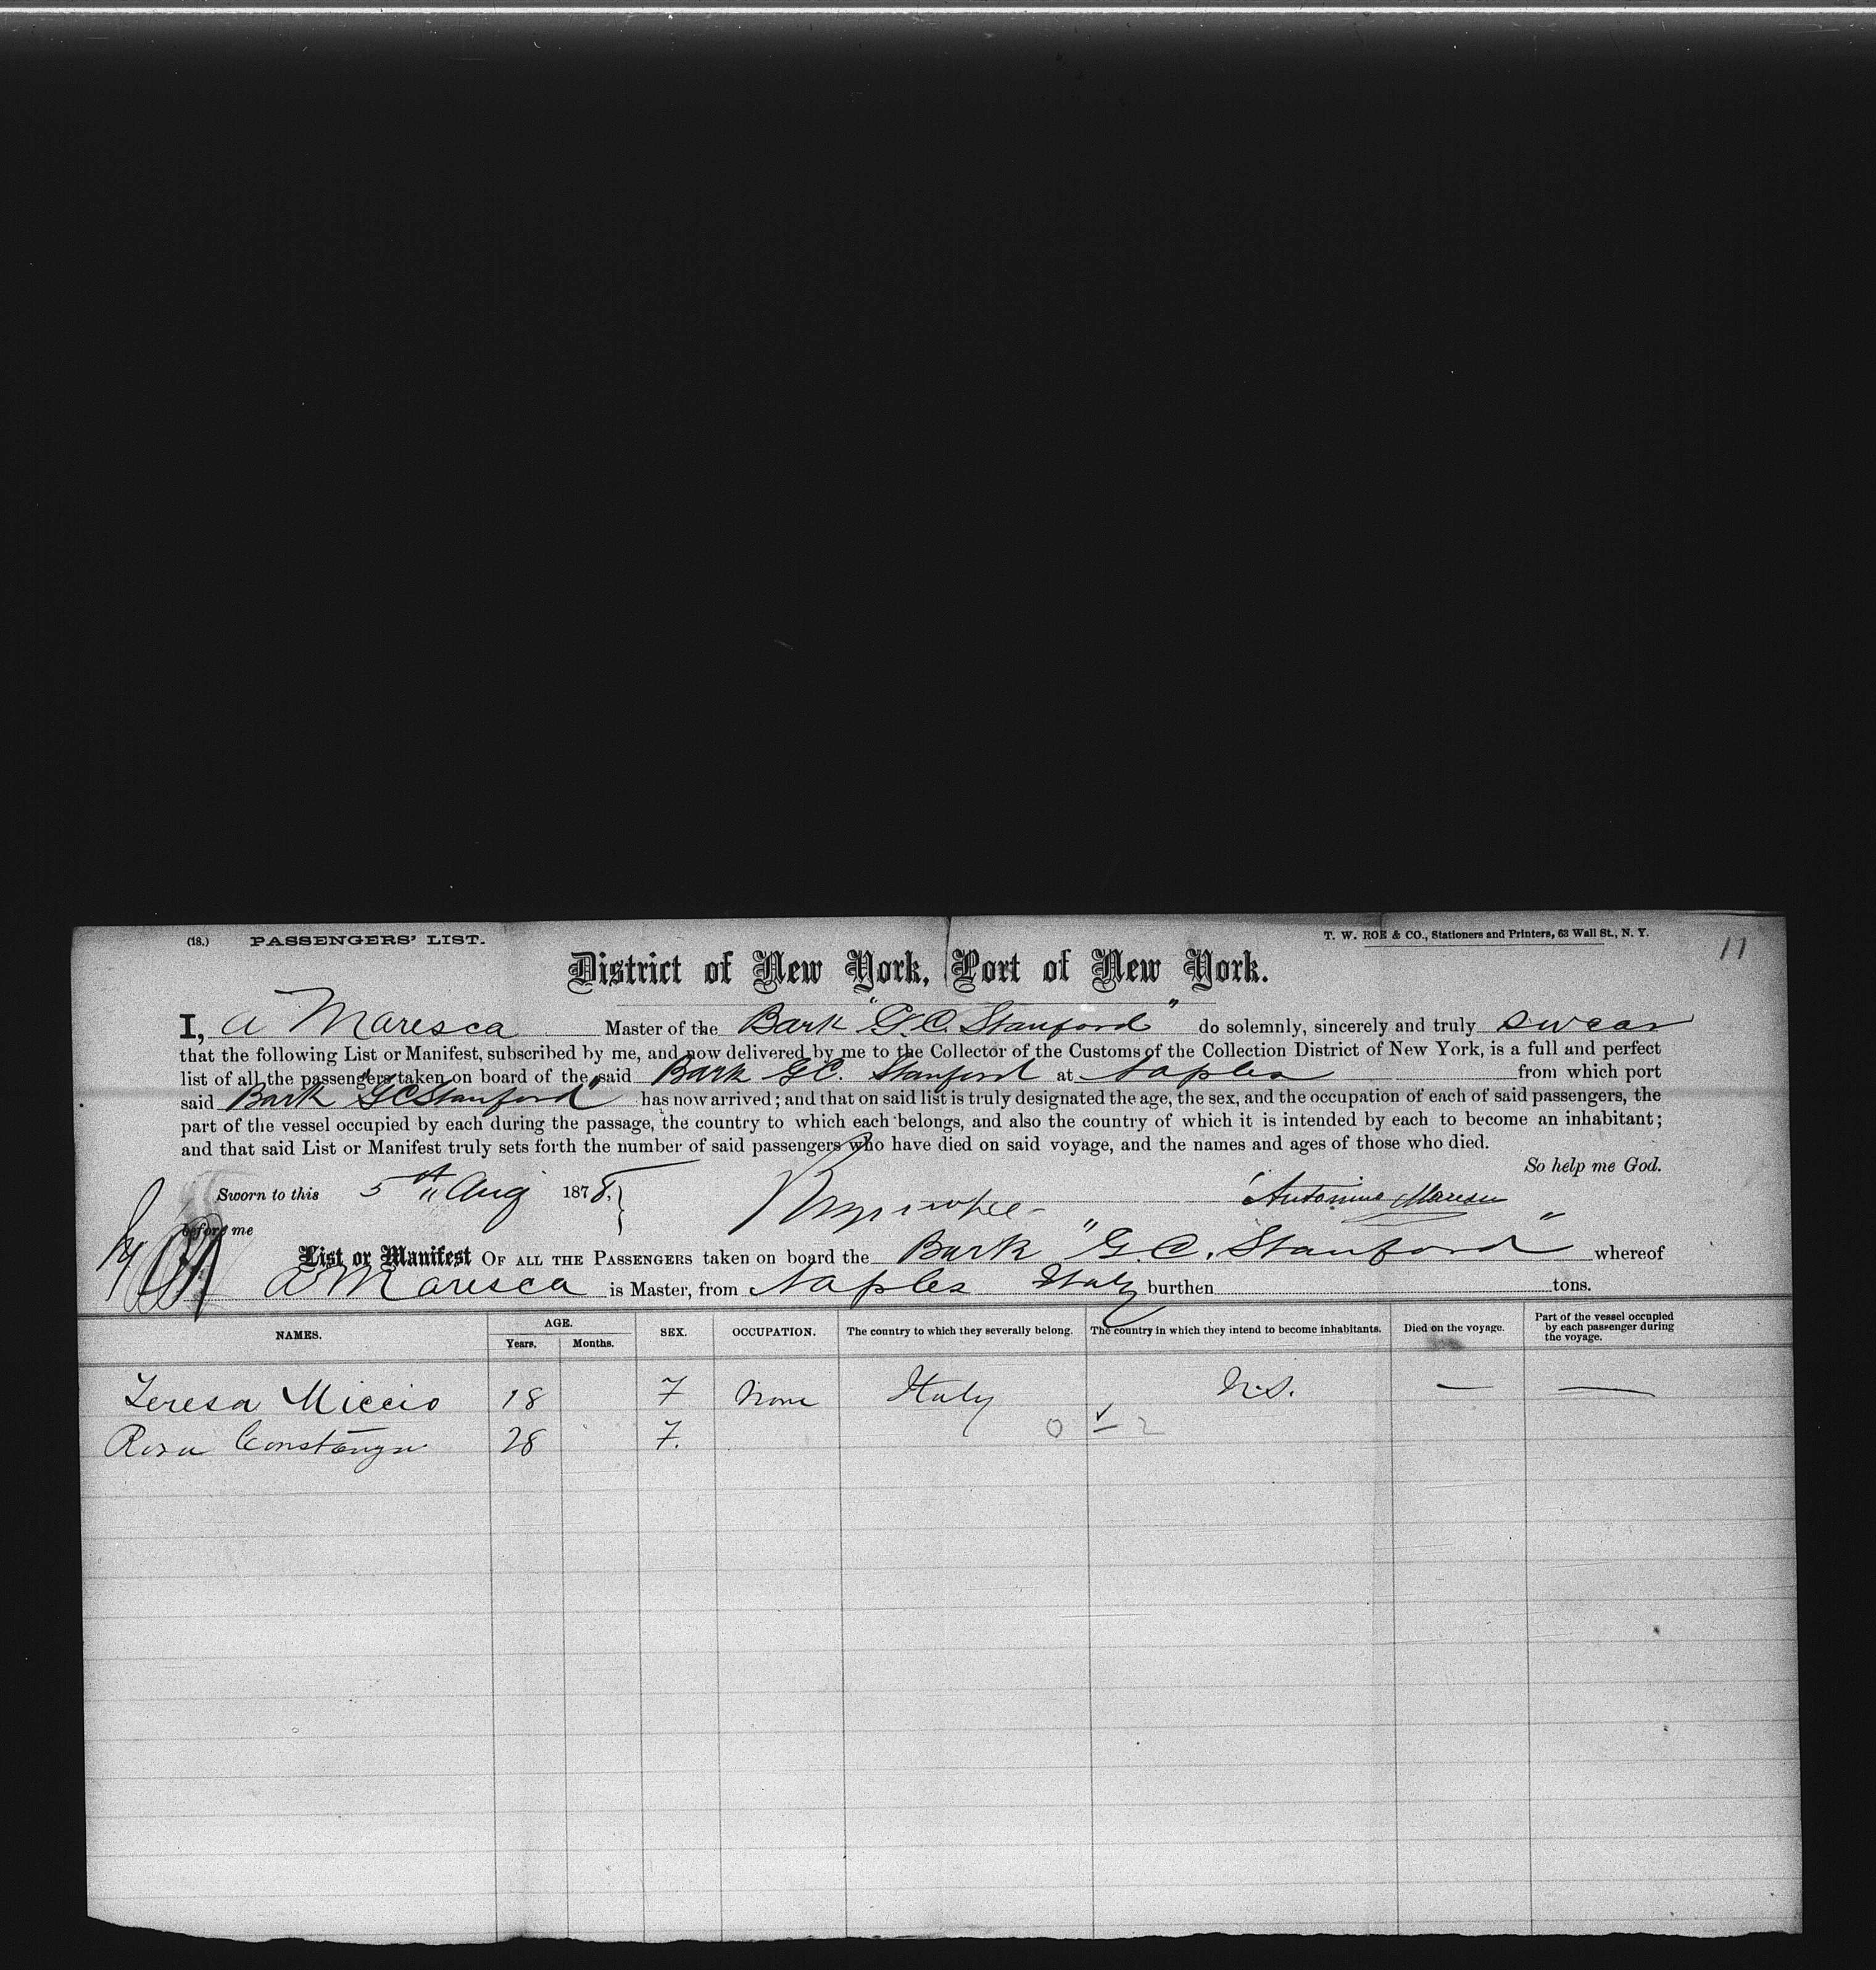 (18.) PASSENGERS' LIST. T. W. ROE & CO., Stationers and Printers, 63 Wall St., N. Y.
17
District of New York, Port of New York.
I, A Maresca Master of the Bark "G. C. Stanford" do solemnly, sincerely and truly swear
that the following List or Manifest, subscribed by me, and now delivered by me to the Collector of the Customs of the Collection District of New York, is a full and perfect
list of all the passengers taken on board of the said Bark G C. Stanford at Naples from which port
said Bark "G C Stanford" has now arrived; and that on said list is truly designated the age, the sex, and the occupation of each of said passengers, the
part of the vessel occupied by each during the passage, the country to which each belongs, and also the country of which it is intended by each to become an inhabitant;
and that said List or Manifest truly sets forth the number of said passengers who have died on said voyage, and the names and ages of those who died.
So help me God.
Sworn to this 5th Aug 1878. Antonino Maresca
before me
List or Manifest OF ALL THE PASSENGERS taken on board the Bark "G. C. Stanford" whereof
A Maresca is Master, from Naples Italy burthen tons.
NAMES. AGE. Years. Months. SEX. OCCUPATION. The country to which they severally belong. The country in which they intend to become inhabitants. Died on the voyage. Part of the vessel occupied by each passenger during the voyage.
Teresa Miccio 18 F None Italy U.S. — —
Rosa 28 F. 0 2